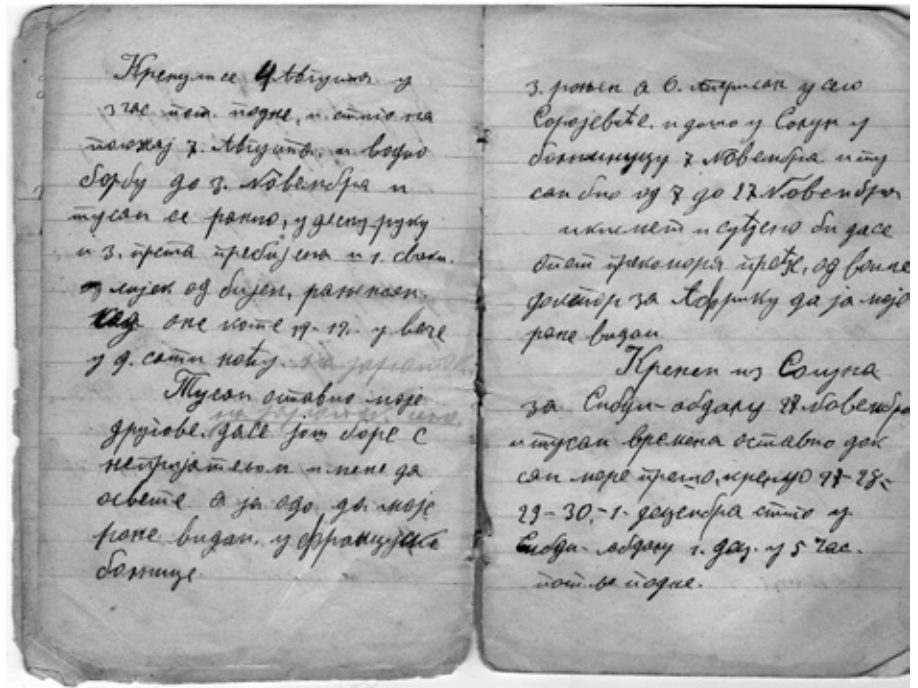 Кренули се 4 Августа у
3 час пот. подне, и стго на
положај 7. Августа. и водио
борбу до 3. Новембра и
тусам се ранио, у десну руку
и 3. прста пребијена и 1. сваки.
лијек од бијен, рањисан.
коте 19-12- у вече
у д. сати ноћу.
Тусам оставио моје
другове. дасе још боре с
непријатељом и мене да
освете а ја одо да моје
ране видам. у француске
болнице.
3. рањен а 6. у село
Соројевиће. и дошо у Солун у
болницу 7 Новембра. и ту
сам био од 7 до 27 Новембра
и кисмет и суђено би дасе
опет прекоморя пређе, од волје
доктор за Африку да ја моје
ране видам
Кренем из Солуна
за Сибди-абдалу 27 Новембра
и тусам времена оставио док
сам море прешо, крено 27-28-
29-30,-1- децембра стиго у
Сибди-абдалу 1. дец. у 5 час.
потље подне.